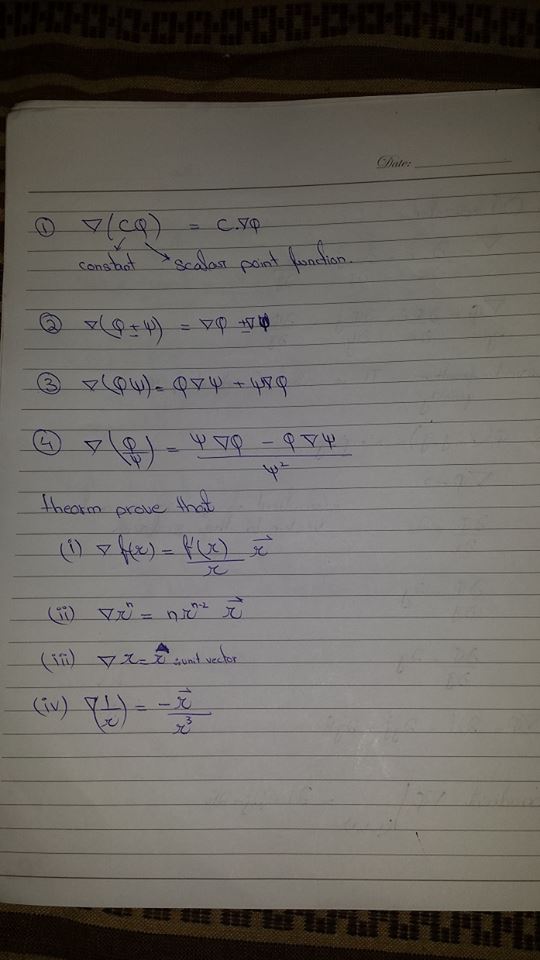 Date:
① ∇(CΦ) = C.∇Φ
constant scalar point function.
② ∇(Φ ± Ψ) = ∇Φ ± ∇Ψ
③ ∇(ΦΨ) = Φ∇Ψ + Ψ∇Φ
④ ∇(Φ/Ψ) = Ψ∇Φ - Φ∇Ψ / Ψ²
theorm prove that
(i) ∇f(r) = f'(r)/r r⃗
(ii) ∇rⁿ = nrⁿ⁻² r⃗
(iii) ∇r = r̂ :unit vector
(iv) ∇(1/r) = -r⃗/r³